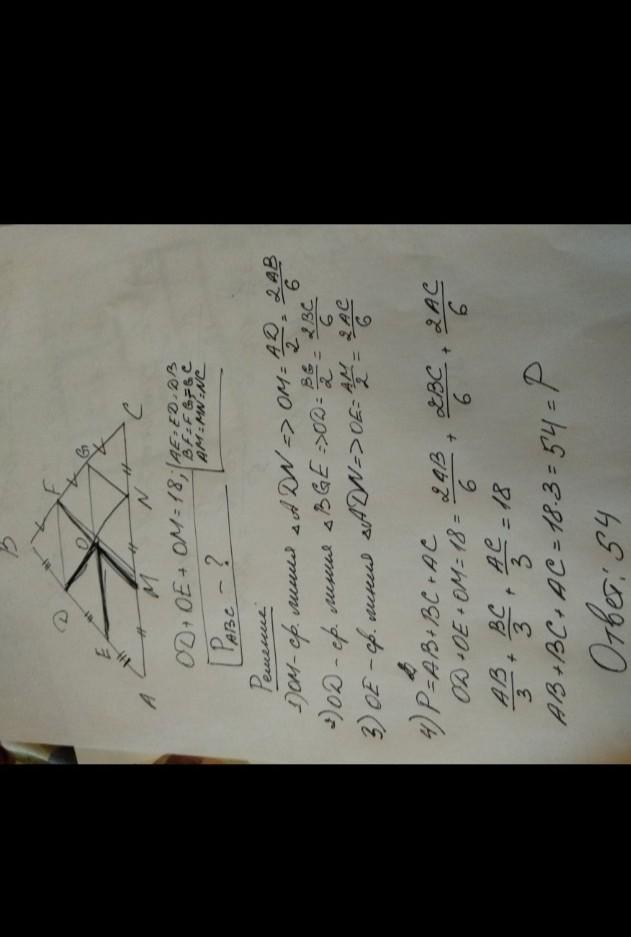 B
D
F
E
O
G
A
M
N
C
OD + OE + OM = 18;
AE = ED = DB
BF = FG = GC
AM = MN = NC
P ABC - ?
Решение:
1) OM - ср. линия △ADN => OM = AD/2 = 2AB/6
2) OD - ср. линия △BGE => OD = BG/2 = 2BC/6
3) OE - ср. линия △ADN => OE = AM/2 = 2AC/6
4) P = AB + BC + AC
OD + OE + OM = 18 = 2AB/6 + 2BC/6 + 2AC/6
AB/3 + BC/3 + AC/3 = 18
AB + BC + AC = 18·3 = 54 = P
Ответ: 54